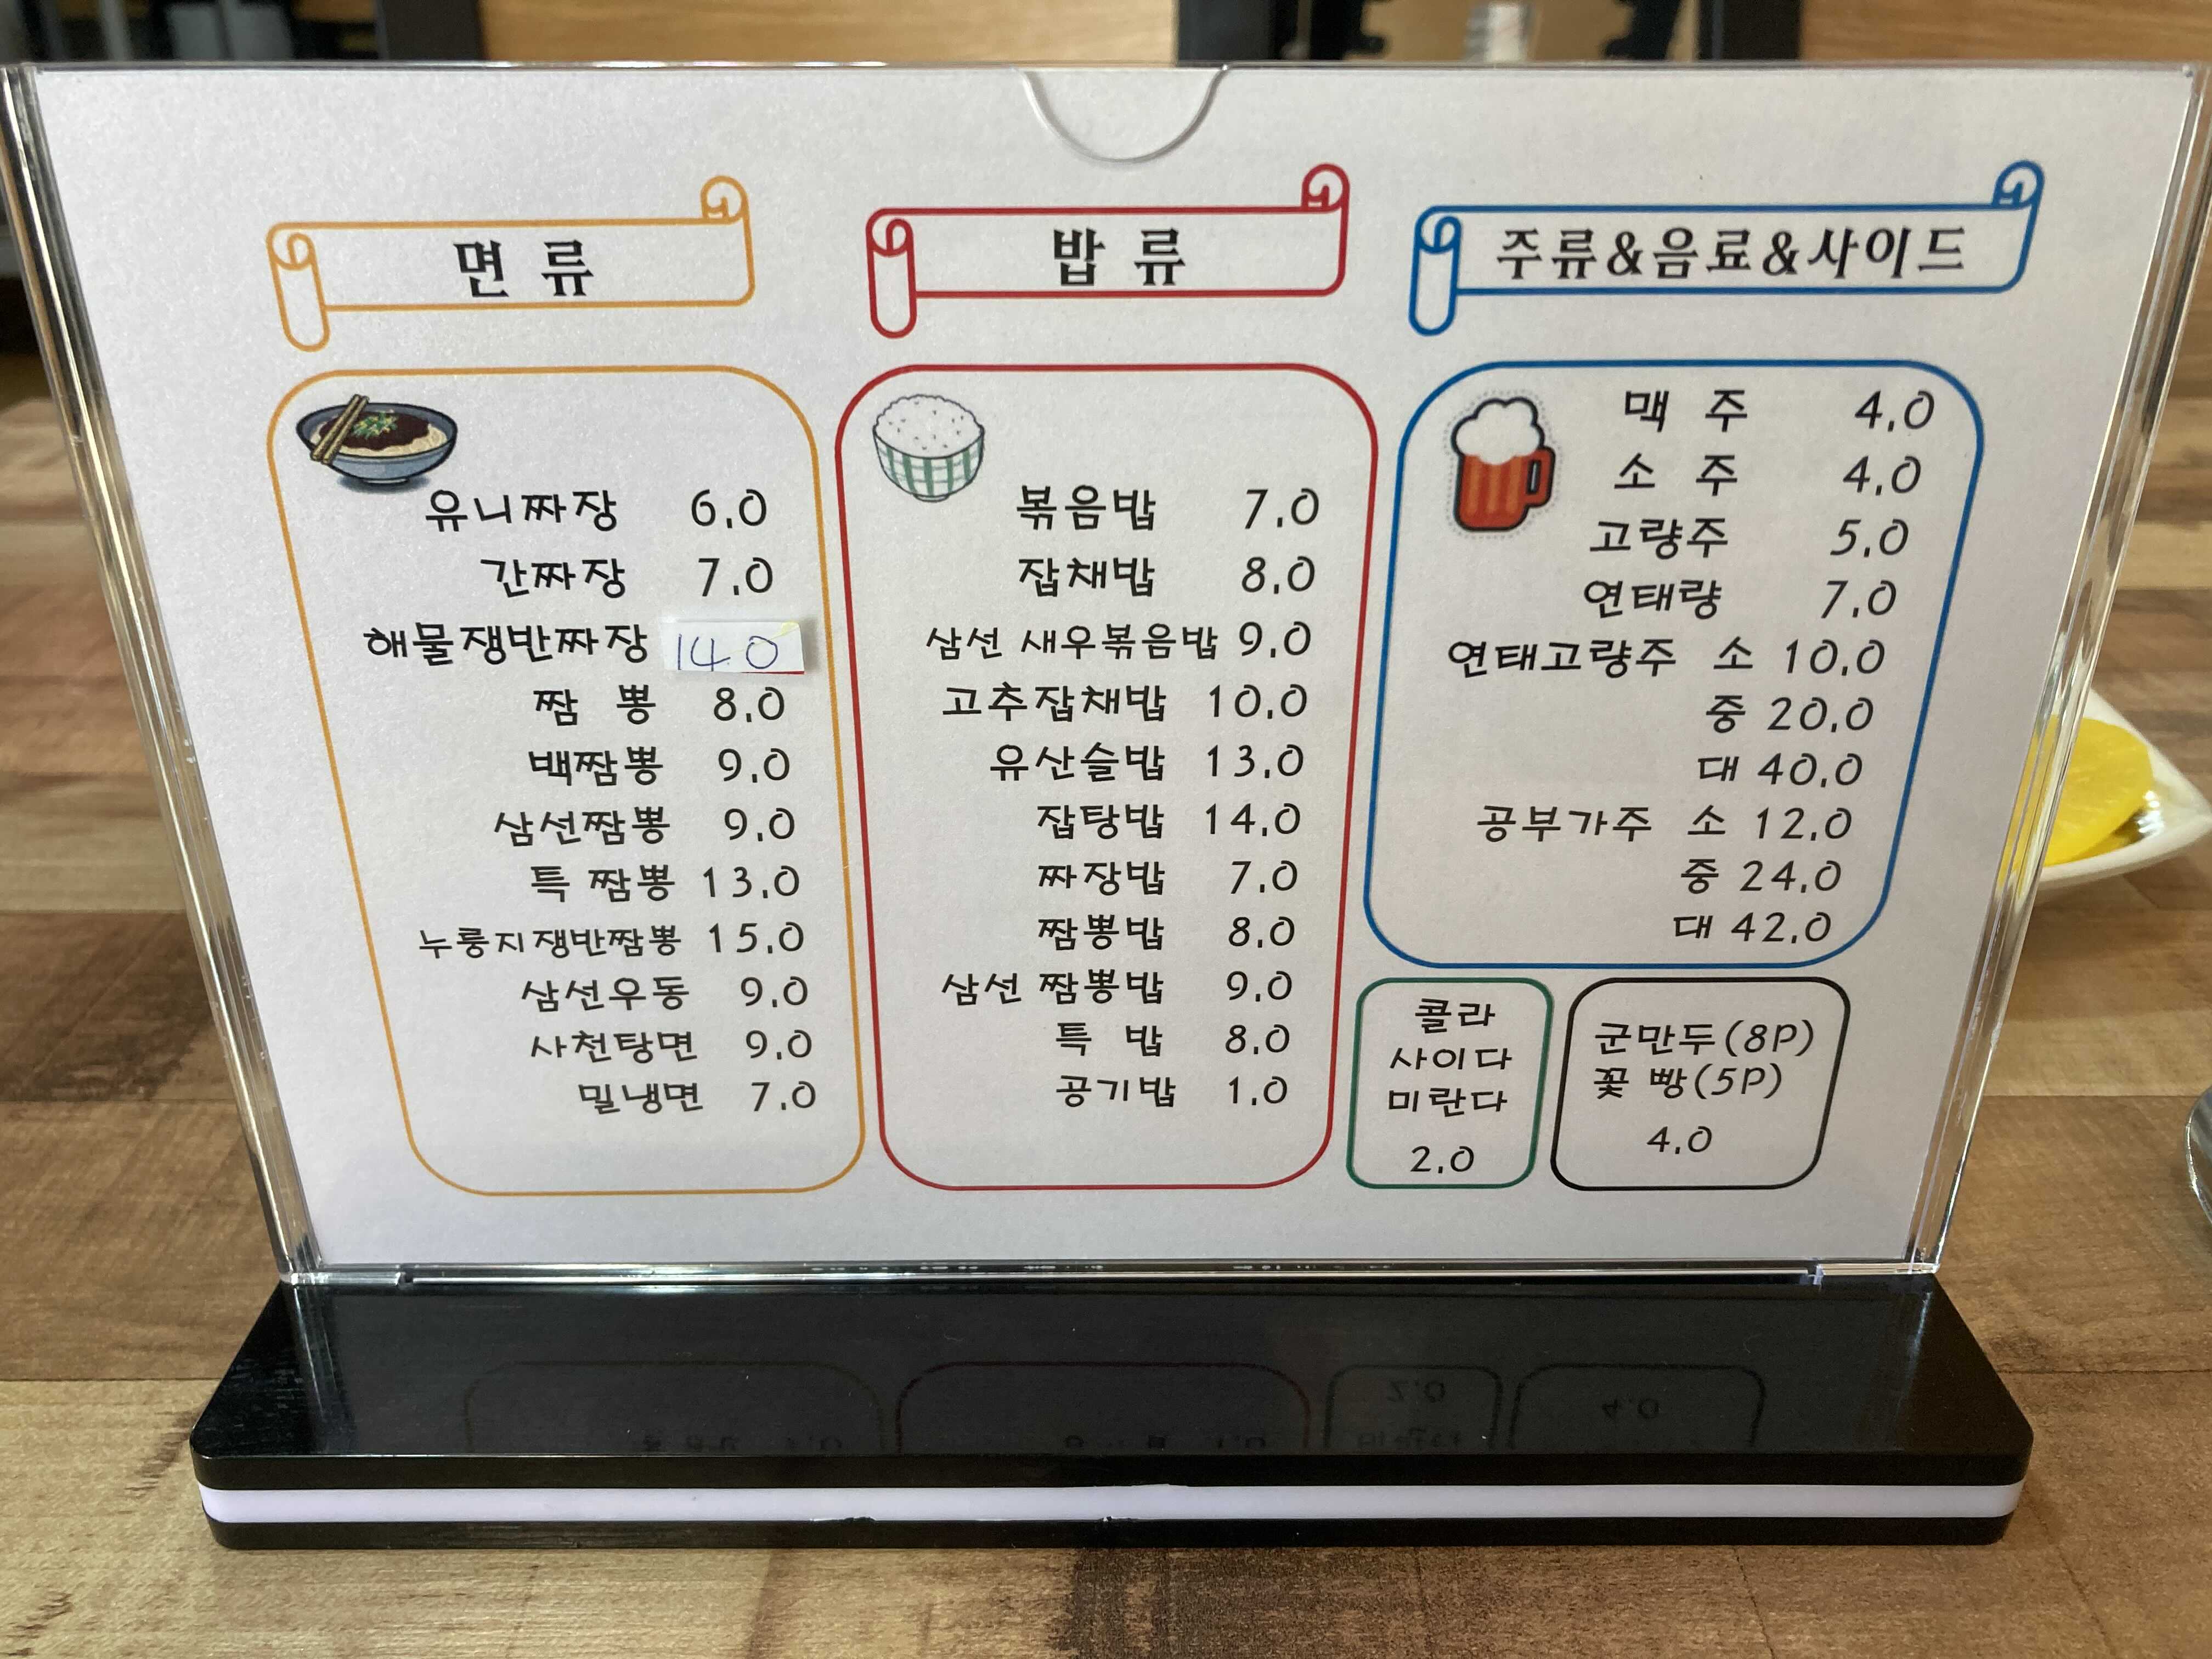 면 류
유니짜장 6.0
간짜장 7.0
해물쟁반짜장 14.0
짬 뽕 8.0
백짬뽕 9.0
삼선짬뽕 9.0
특 짬뽕 13.0
누룽지쟁반짬뽕 15.0
삼선우동 9.0
사천탕면 9.0
밀냉면 7.0
밥 류
볶음밥 7.0
잡채밥 8.0
삼선 새우볶음밥 9.0
고추잡채밥 10.0
유산슬밥 13.0
잡탕밥 14.0
짜장밥 7.0
짬뽕밥 8.0
삼선 짬뽕밥 9.0
특 밥 8.0
공기밥 1.0
주류&음료&사이드
맥 주 4.0
소 주 4.0
고량주 5.0
연태량 7.0
연태고량주 소 10.0
중 20.0
대 40.0
공부가주 소 12.0
중 24.0
대 42.0
콜라
사이다
미란다
2.0
군만두(8P)
꽃 빵(5P)
4.0